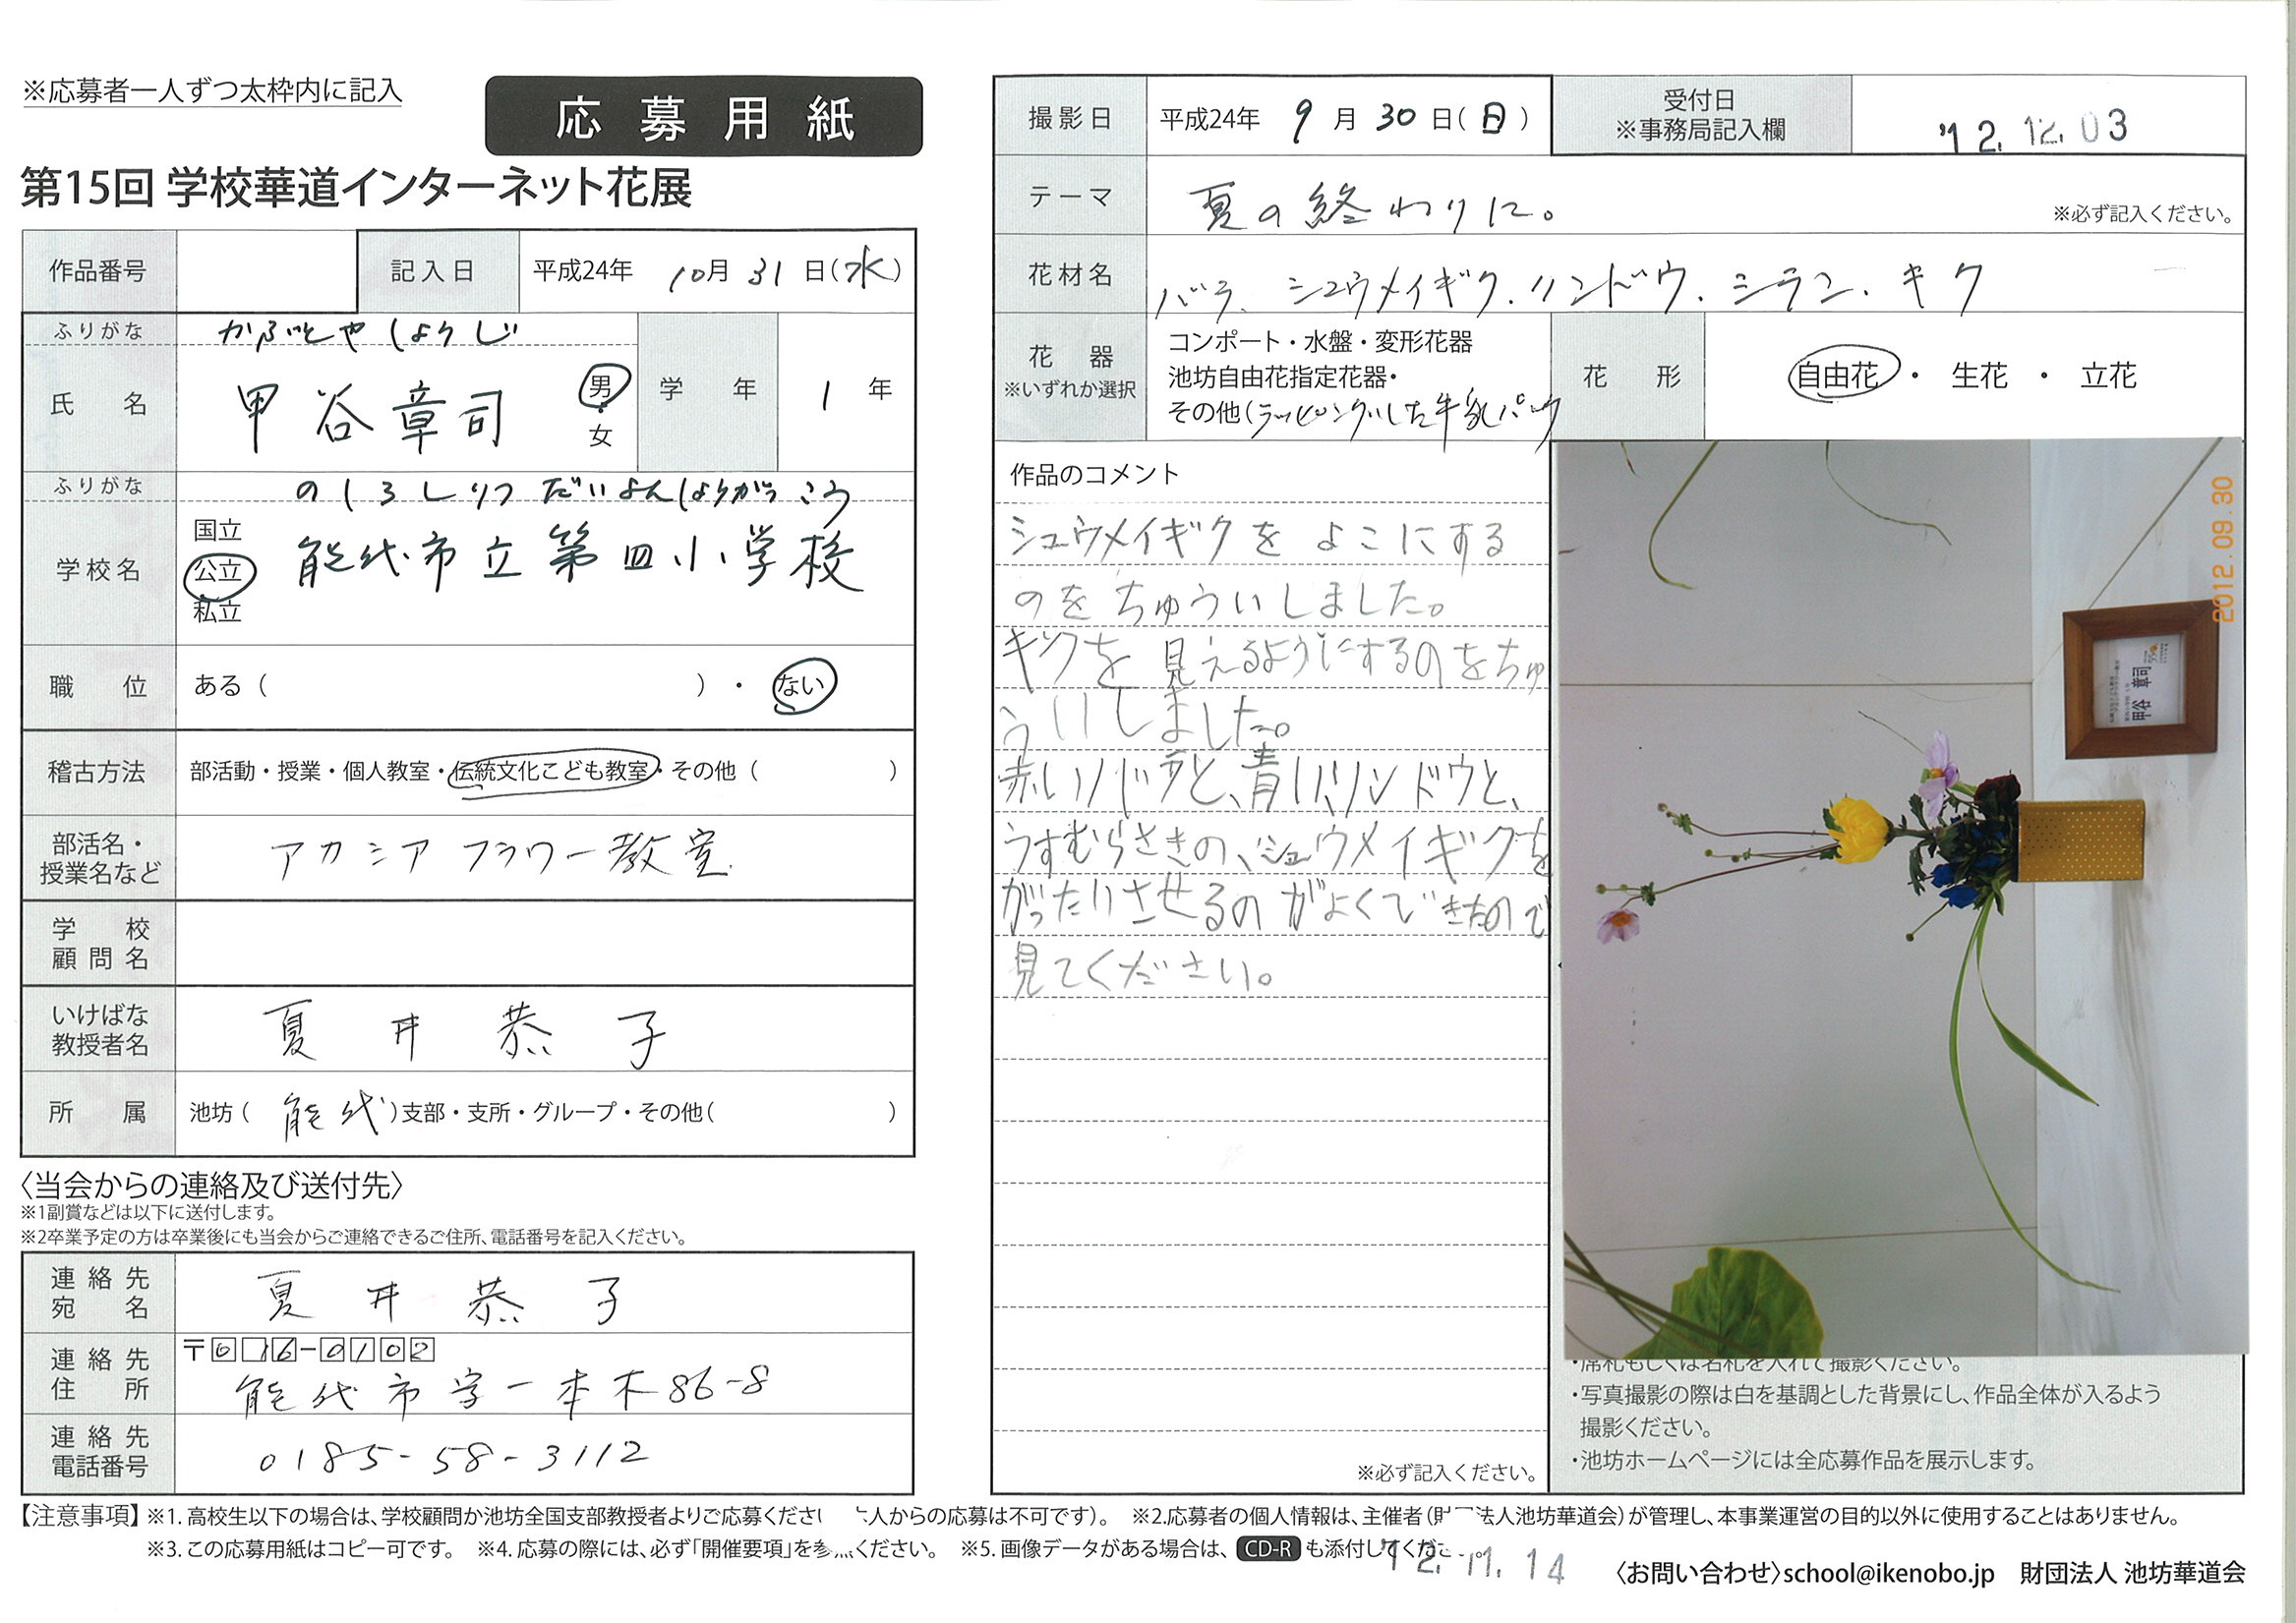 ※応募者一人ずつ太枠内に記入
応募用紙
第15回 学校華道インターネット花展
作品番号
記入日 平成24年 10月 31日(水)
ふりがな かぶとや しょうじ
氏名 甲谷章司 男・女
学年 1年
ふりがな のしろしりつ だいよんしょうがっこう
学校名 国立 公立 私立 能代市立第四小学校
職位 ある( )・ない
稽古方法 部活動・授業・個人教室・伝統文化こども教室・その他( )
部活名・授業名など アカシアフラワー教室
学校顧問名
いけばな教授者名 夏井恭子
所属 池坊(能代)支部・支所・グループ・その他( )
〈当会からの連絡及び送付先〉
※1副賞などは以下に送付します。
※2卒業予定の方は卒業後にも当会からご連絡できるご住所、電話番号を記入ください。
連絡先宛名 夏井恭子
連絡先住所 〒016-0102
能代市字一本木86-8
連絡先電話番号 0185-58-3112
撮影日 平成24年 9月 30日(日)
受付日 ※事務局記入欄 '12.12.03
テーマ 夏の終わりに。 ※必ず記入ください。
花材名 バラ、シュウメイギク.リンドウ.シラン.キク
花器 ※いずれか選択
コンポート・水盤・変形花器
池坊自由花指定花器・
その他(ラッピングした牛乳パック
花形 自由花・生花・立花
作品のコメント
シュウメイギクをよこにする
のをちゅういしました。
キクを見えるようにするのをちゅ
ういしました。
赤いバラと、青いリンドウと、
うすむらさきの、シュウメイギクを
がったいさせるのがよくできたので
見てください。
※必ず記入ください。
2012.09.30
甲谷 章司
・席札もしくは名札を入れて撮影ください。
・写真撮影の際は白を基調とした背景にし、作品全体が入るよう
撮影ください。
・池坊ホームページには全応募作品を展示します。
【注意事項】※1.高校生以下の場合は、学校顧問か池坊全国支部教授者よりご応募くださ 人からの応募は不可です)。 ※2.応募者の個人情報は、主催者(財 法人池坊華道会)が管理し、本事業運営の目的以外に使用することはありません。
※3.この応募用紙はコピー可です。 ※4.応募の際には、必ず「開催要項」を参 ください。 ※5.画像データがある場合は、CD-Rも添付してくだ
'12.11.14
〈お問い合わせ〉school@ikenobo.jp 財団法人 池坊華道会